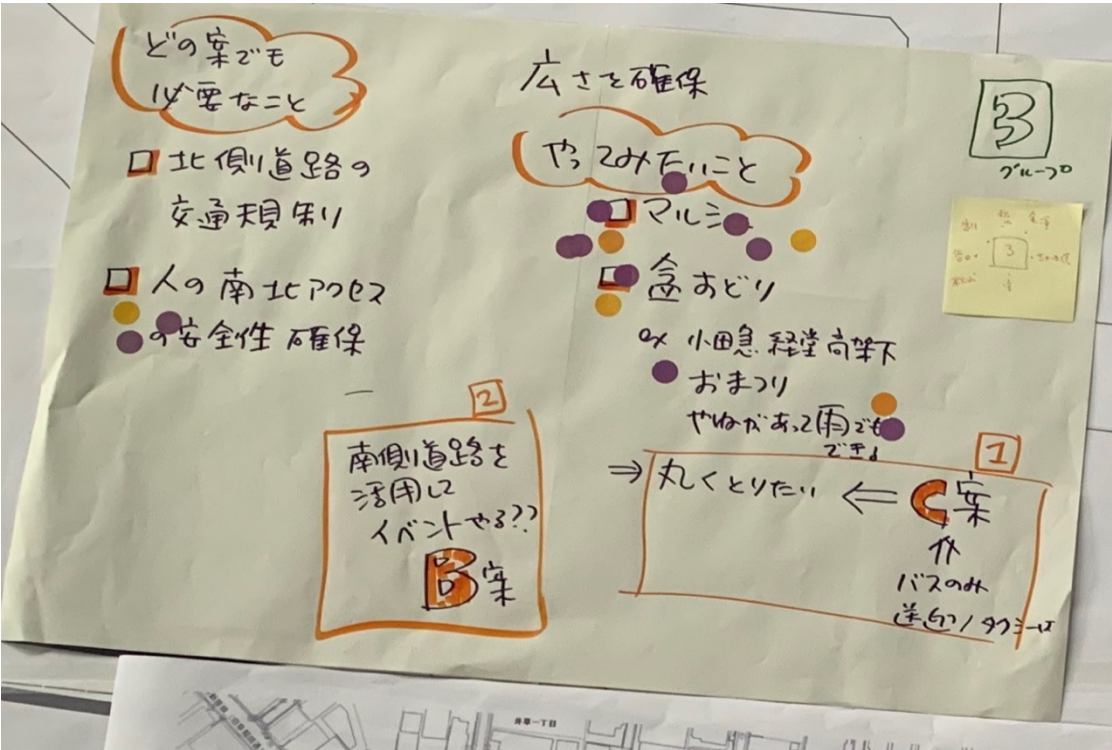 どの案でも
必要なこと
北側道路の
交通規制
人の南北アクセス
の安全性確保
広さを確保
やってみたいこと
マルシェ
盆おどり
ex 小田急経堂高架下
おまつり
やねがあって雨でも
できる
3
グループ
3
2
南側道路を
活用して
イベントやる??
B案
1
⇒ 丸くとりたい ⇐ C案
⇑
バスのみ
送迎/タクシーは